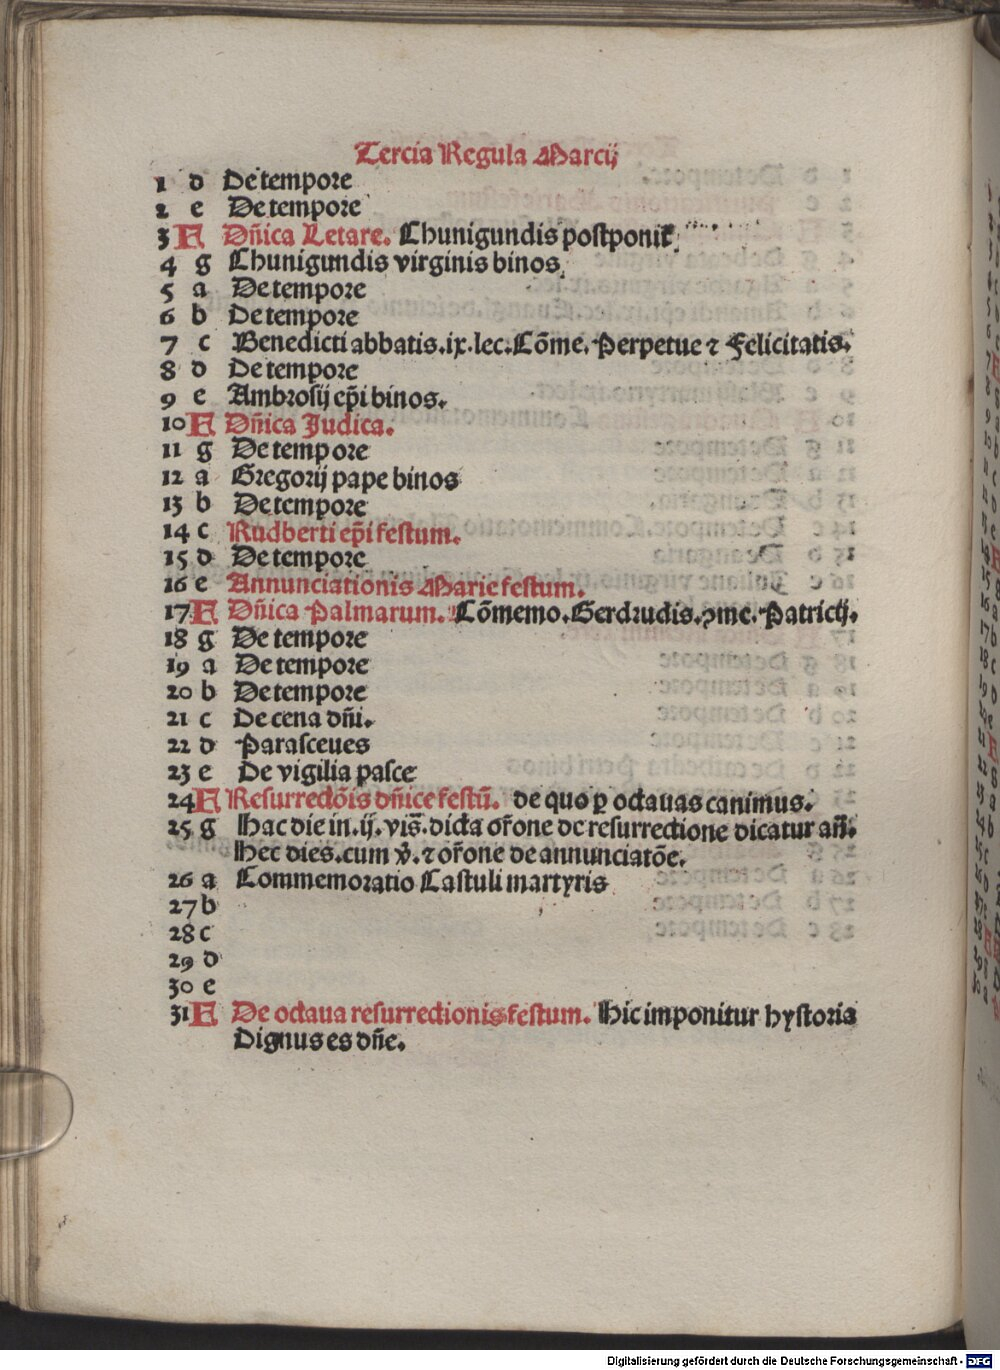 Tercia Regula Marcij
1 d De tempore
2 e De tempore
3 F Dñica Letare. Chunigundis postponit̃
4 g Chunigundis virginis binos.
5 a De tempore
6 b De tempore
7 c Benedicti abbatis.ix.lec.Cõme.Perpetue ⁊ Felicitatis.
8 d De tempore
9 e Ambrosij ep̃i binos.
10 F Dñica Judica.
11 g De tempore
12 a Gregorij pape binos
13 b De tempore
14 c Rudberti ep̃i festum.
15 d De tempore
16 e Annunciationis Marie festum.
17 F Dñica Palmarum. Cõmemo.Gerdrudis.ꝯme.Patricij.
18 g De tempore
19 a De tempore
20 b De tempore
21 c De cena dñi.
22 d Parasceues
23 e De vigilia pasce
24 F Resurrectõis dñice festũ. de quo ꝑ octauas canimus.
25 g Hac die in.ij.vis̃.dicta or̃one de resurrectione dicatur añ.
Hec dies.cum v̾.⁊ or̃one de annunciatõe.
26 a Commemoratio Castuli martyris
27 b
28 c
29 d
30 e
31 F De octaua resurrectionis festum. Hic imponitur hystoria
Dignus es dñe.
Digitalisierung gefördert durch die Deutsche Forschungsgemeinschaft - DFG